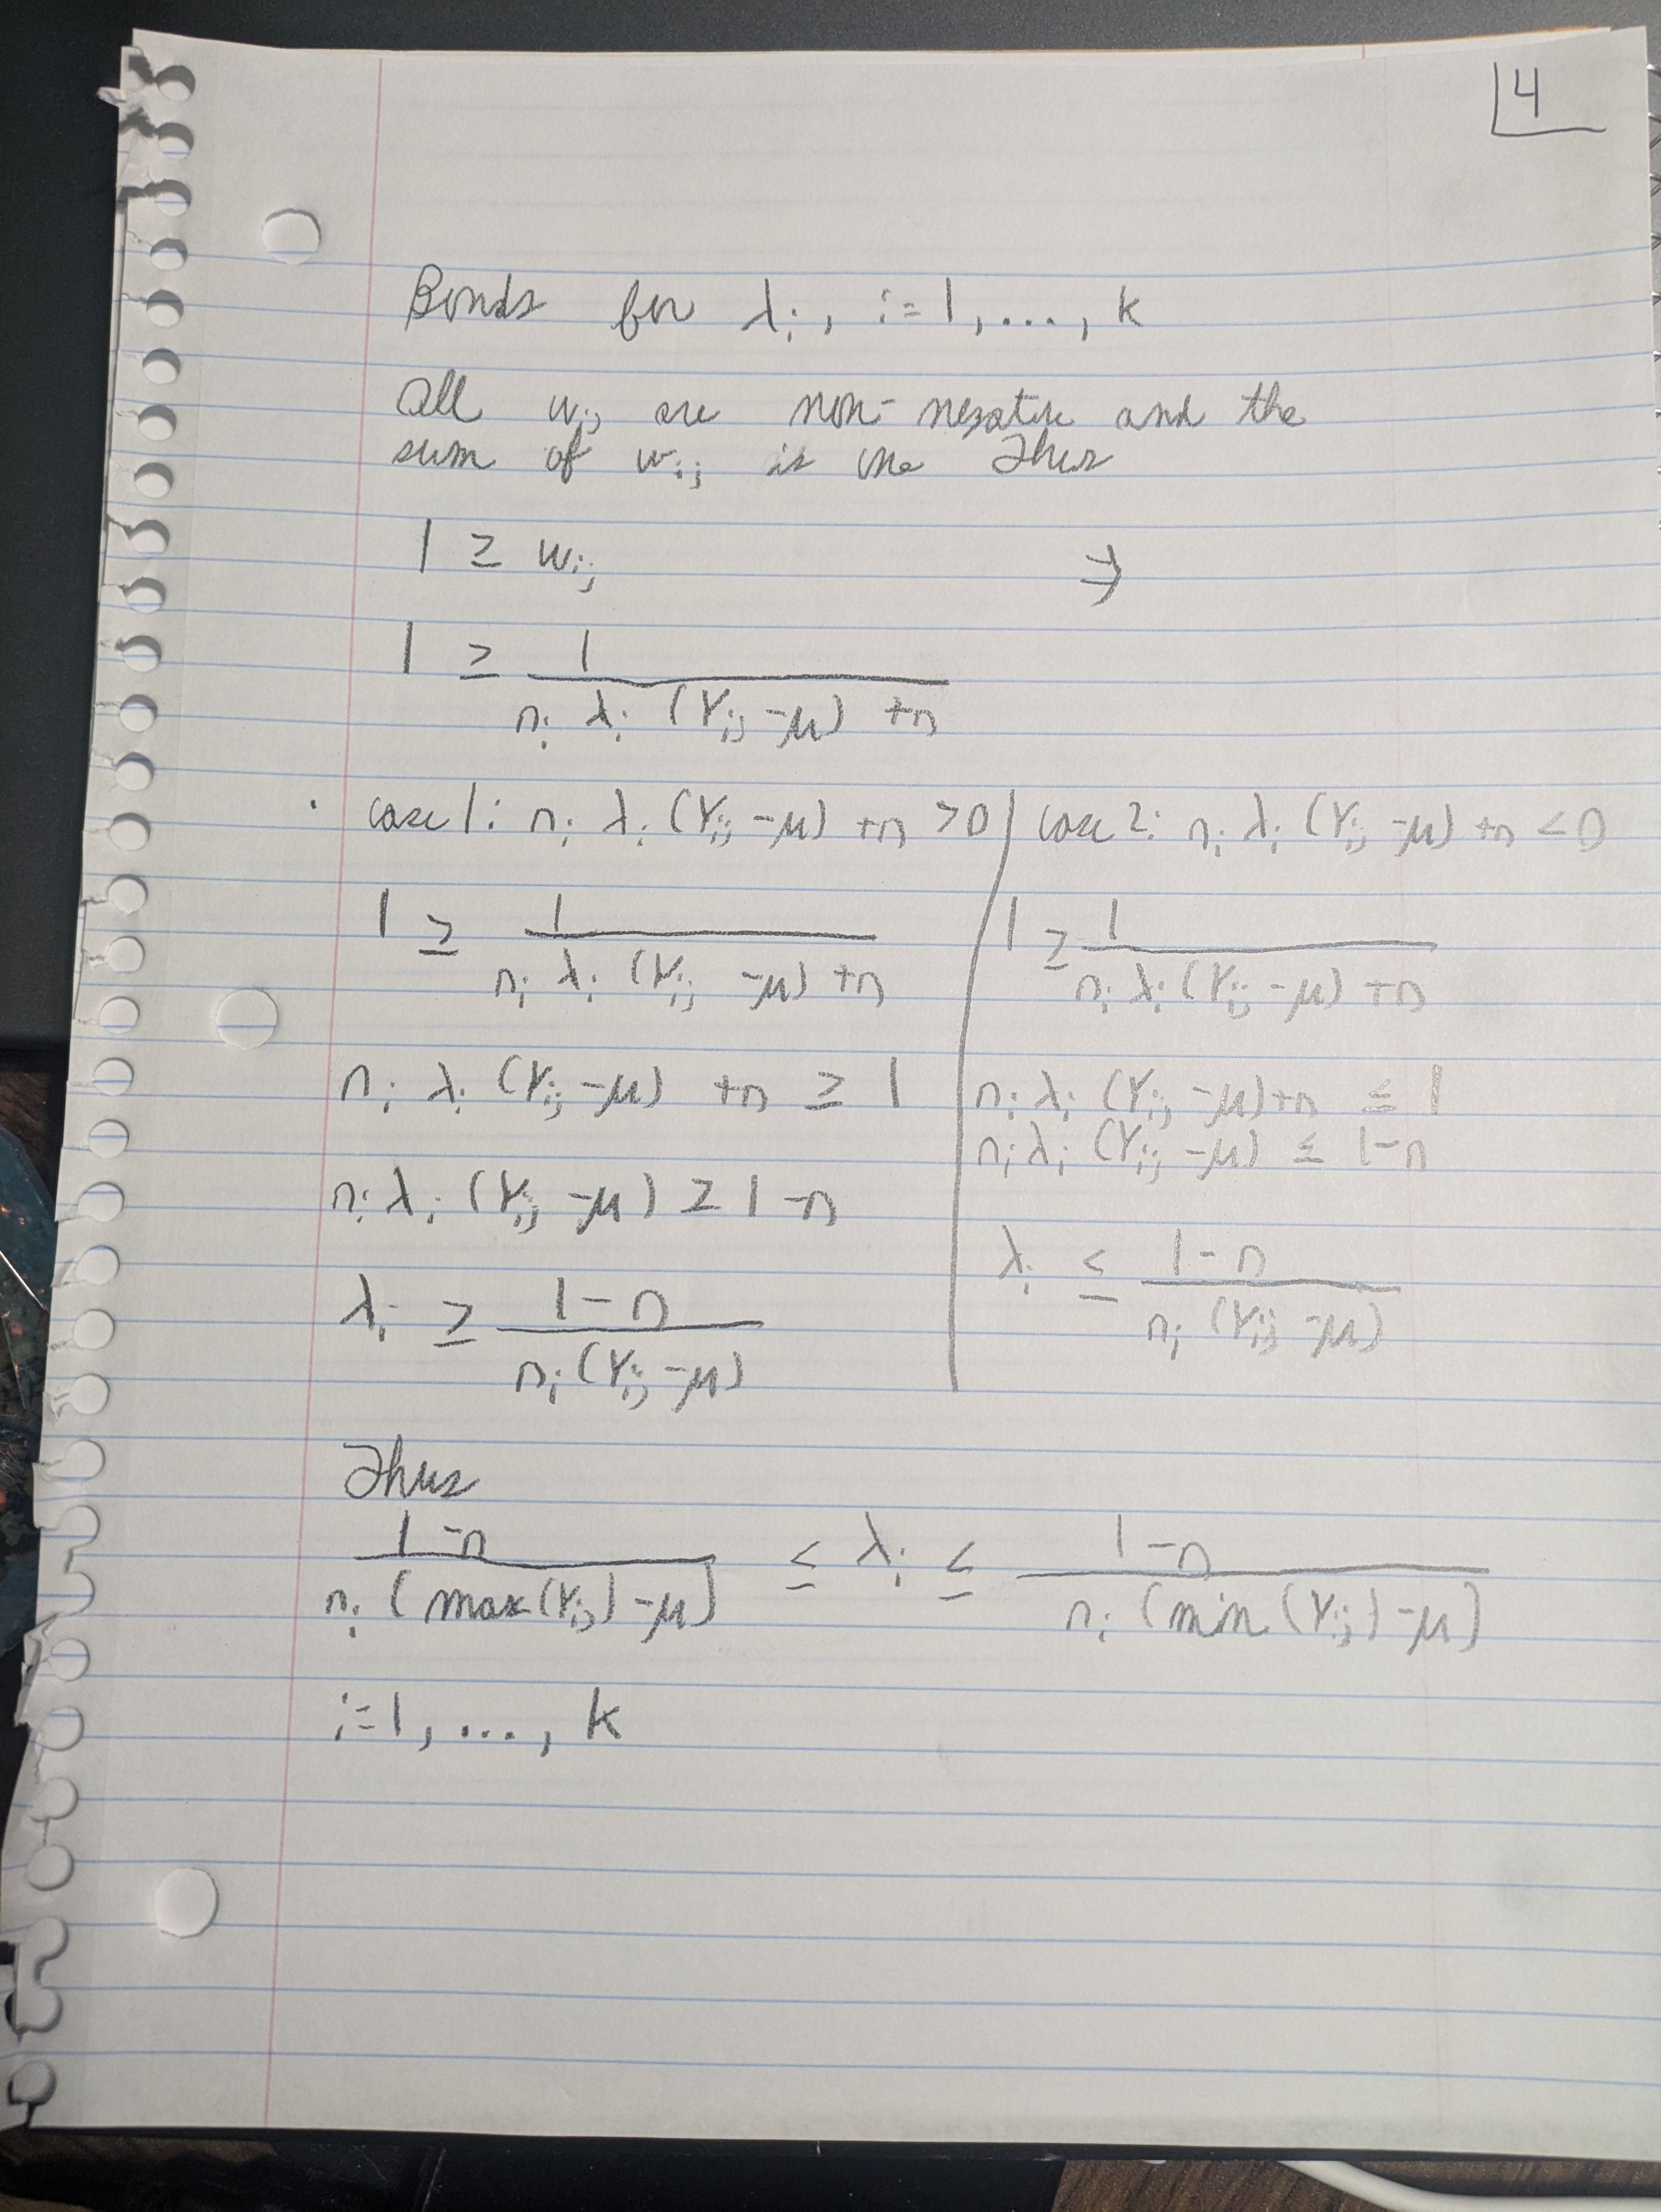 4
Bonds for λᵢ, i=1,...,k
All wᵢⱼ are non-negative and the
sum of wᵢⱼ is one Thus
1 ≥ wᵢⱼ ⇒
1 ≥ 1 / (nᵢ λᵢ (Yᵢⱼ -μ) +n)
· case 1: nᵢ λᵢ (Yᵢⱼ -μ) +n >0 | case 2: nᵢ λᵢ (Yᵢⱼ -μ) +n <0
1 ≥ 1 / (nᵢ λᵢ (Yᵢⱼ -μ) +n) | 1 ≥ 1 / (nᵢ λᵢ (Yᵢⱼ -μ) +n)
nᵢ λᵢ (Yᵢⱼ -μ) +n ≥ 1 | nᵢ λᵢ (Yᵢⱼ -μ)+n ≤ 1
nᵢ λᵢ (Yᵢⱼ -μ) ≤ 1-n
nᵢ λᵢ (Yᵢⱼ -μ) ≥ 1-n
λᵢ ≥ (1-n) / (nᵢ (Yᵢⱼ -μ)) | λᵢ ≤ (1-n) / (nᵢ (Yᵢⱼ -μ))
Thus
(1-n) / (nᵢ (max(Yᵢⱼ) -μ)) ≤ λᵢ ≤ (1-n) / (nᵢ (min(Yᵢⱼ) -μ))
i=1,...,k